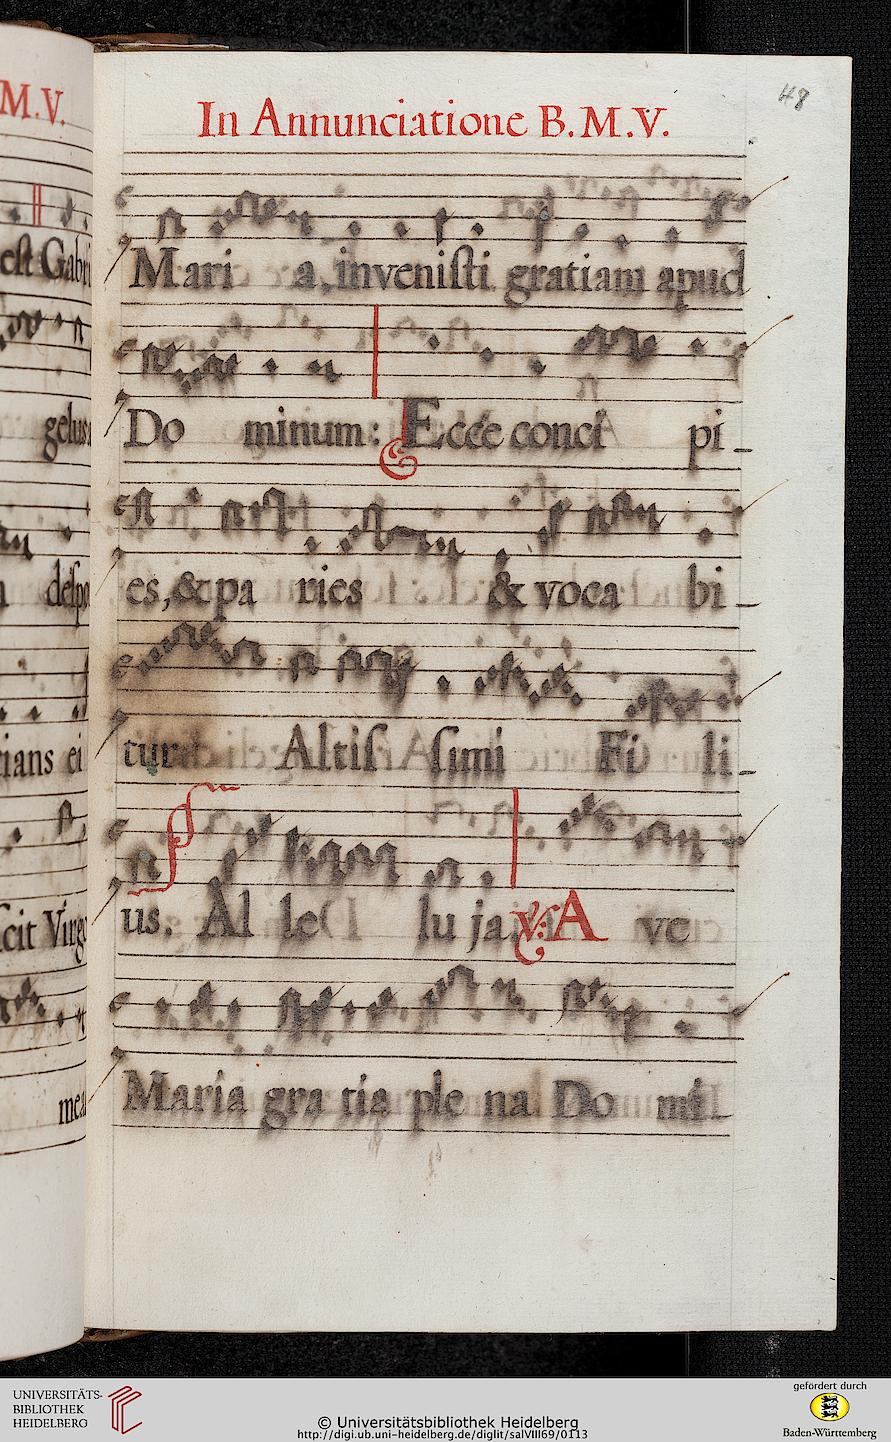 M.V.
est Gabri
gelus
despo
cians ei
scit Virgo
mea
48
In Annunciatione B.M.V.
Mari a, invenisti gratiam apud
Do minum: Ecce conci pi_
es, & pa ries & voca bi_
tur Altis simi Fi li_
us. Al le lu ja. V. A ve
Maria gra tia ple na Do mi_
UNIVERSITÄTS-
BIBLIOTHEK
HEIDELBERG
© Universitätsbibliothek Heidelberg
http://digi.ub.uni-heidelberg.de/diglit/salVIII69/0113
gefördert durch
Baden-Württemberg